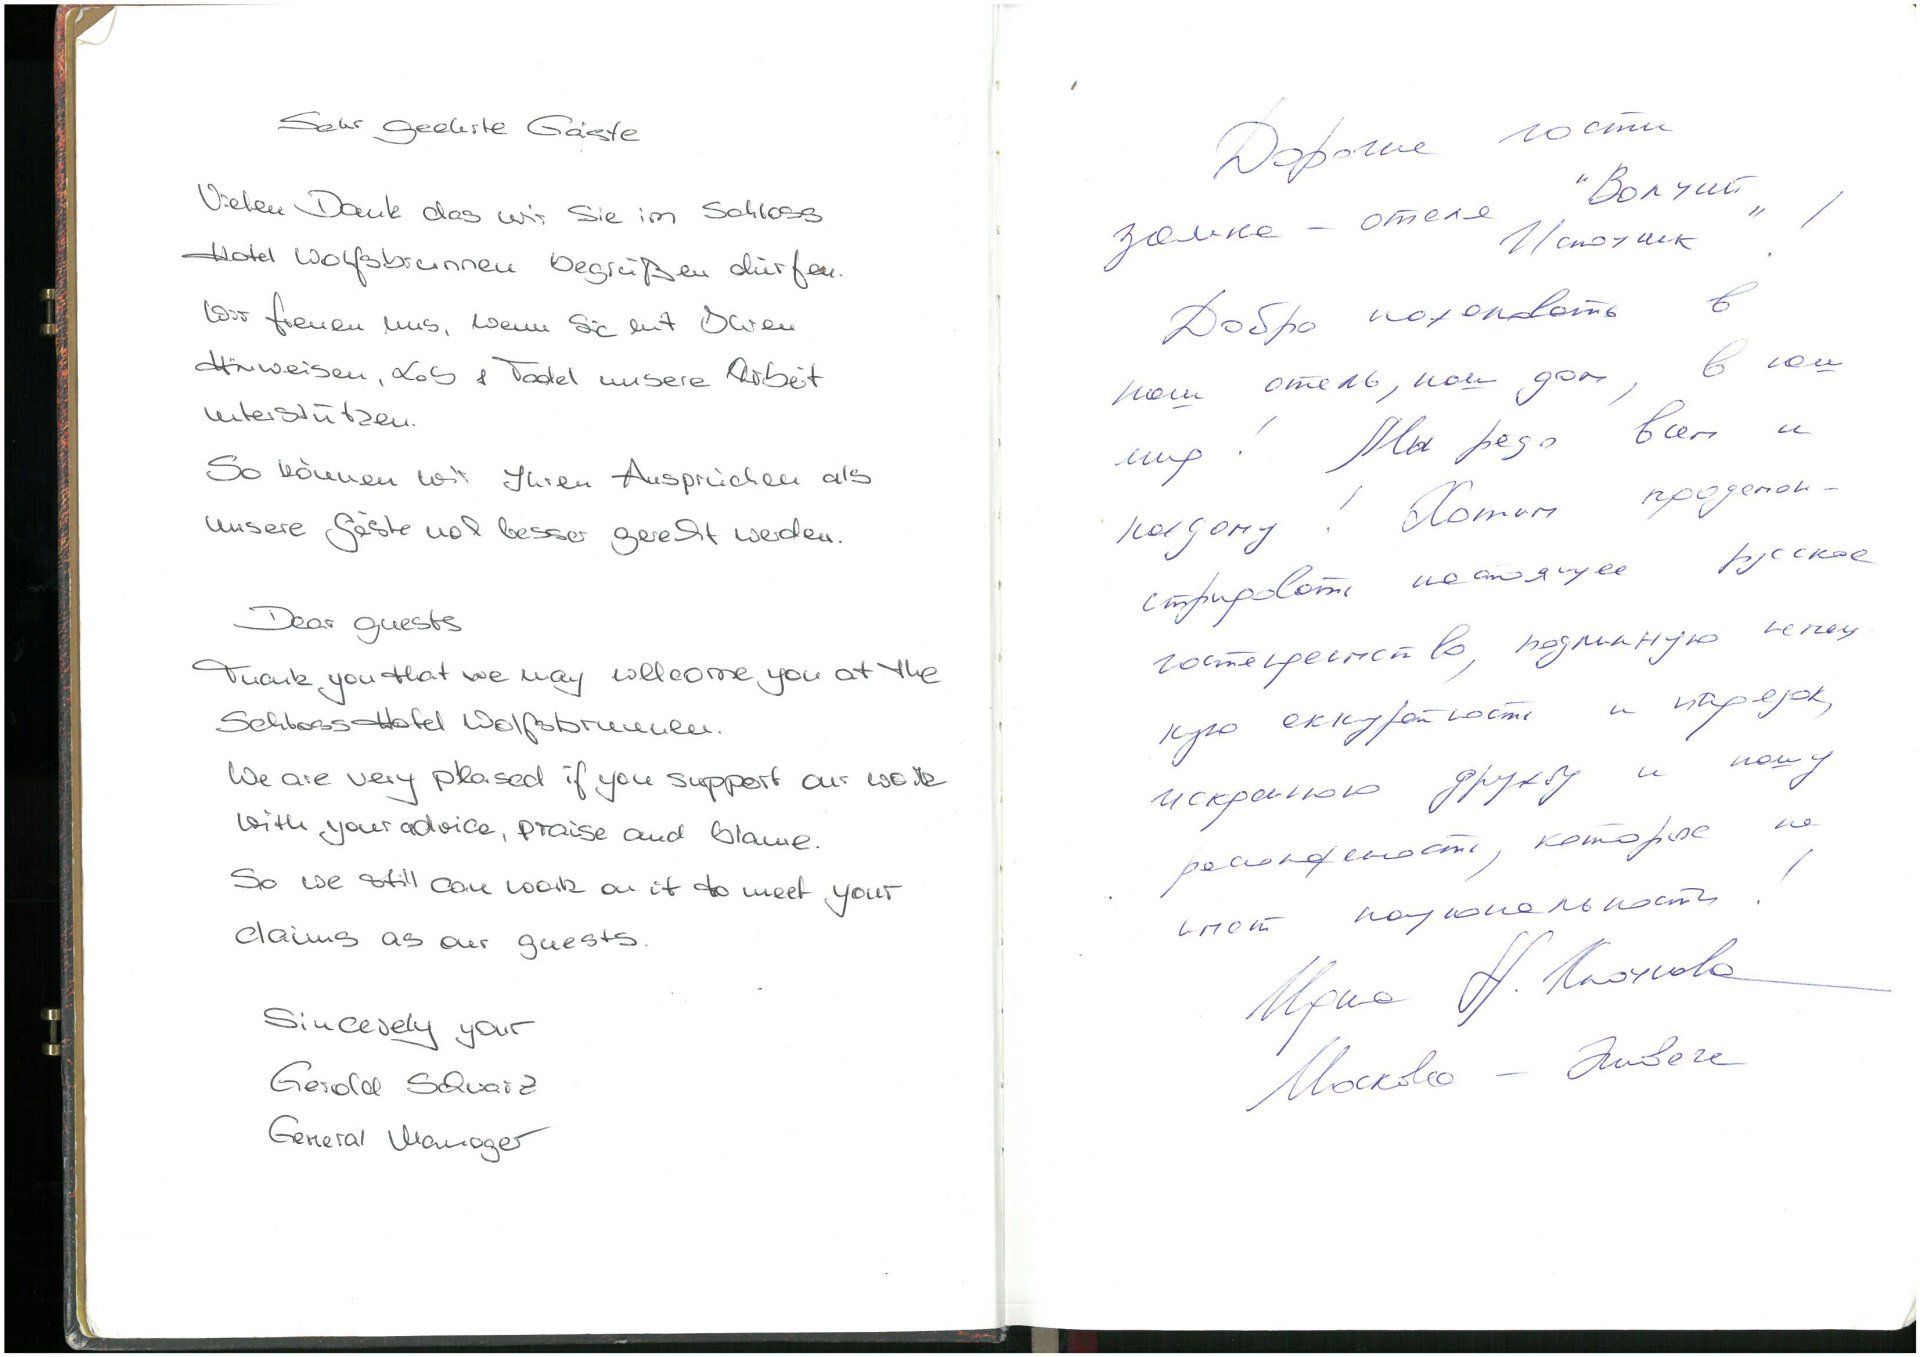 Sehr geehrte Gäste
Vielen Dank das wir Sie im Schloss
Hotel Wolfsbrunnen begrüßen dürfen.
Wir freuen uns, wenn Sie mit Ihren
Hinweisen, Lob & Tadel unsere Arbeit
unterstützen.
So können wir Ihren Ansprüchen als
unsere Gäste noch besser gerecht werden.
Dear guests
Thank you that we may wellcome you at the
Schloss Hotel Wolfsbrunnen.
We are very pleased if you support our work
with your advice, praise and blame.
So we still can work on it to meet your
claims as our guests.
Sincerely your
Gerold Schwarz
General Manager
Дорогие гости
замка - отеля "Волчий
Источник"!
Добро пожаловать в
наш отель, наш дом, в наш
мир! Мы рады вам и
каждому! Хотим продемон-
стрировать настоящее русское
гостеприимство, подлинную немец
кую аккуратность и порядок,
искреннюю дружбу и нашу
расположеность, которые не
имеют национальность!
Ирина Н.
Москва - Эшвеге